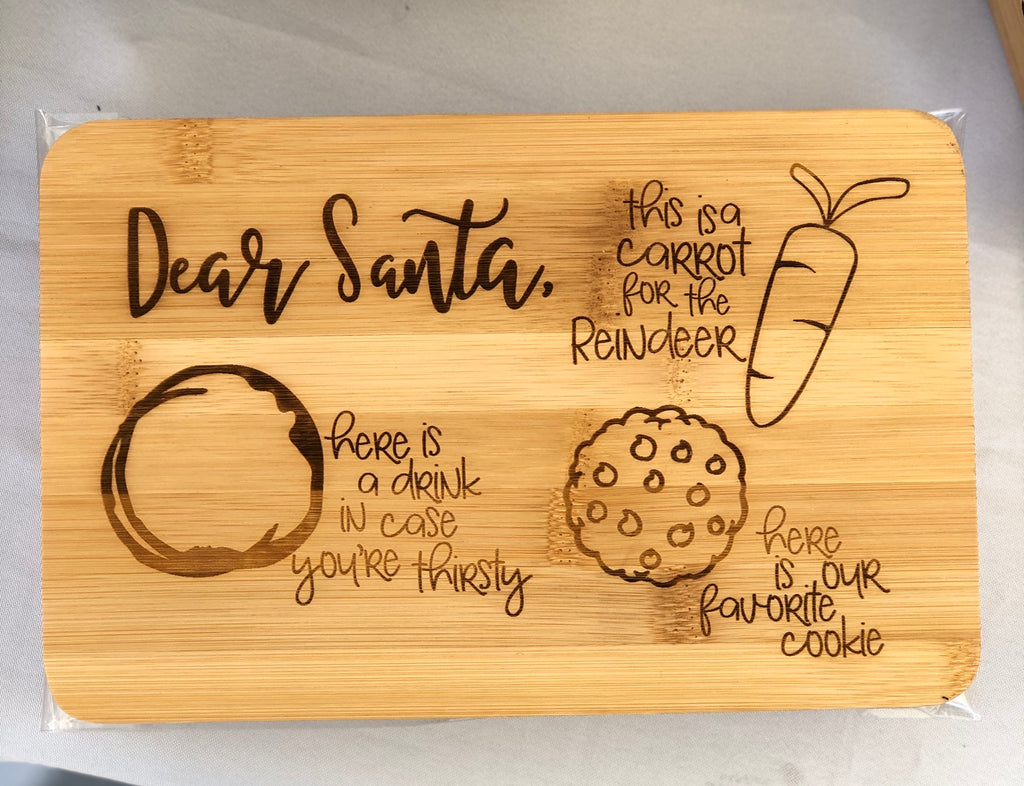 Dear Santa,
this is a
carrot
for the
Reindeer
here is
a drink
in case
you're thirsty
here
is our
favorite
cookie